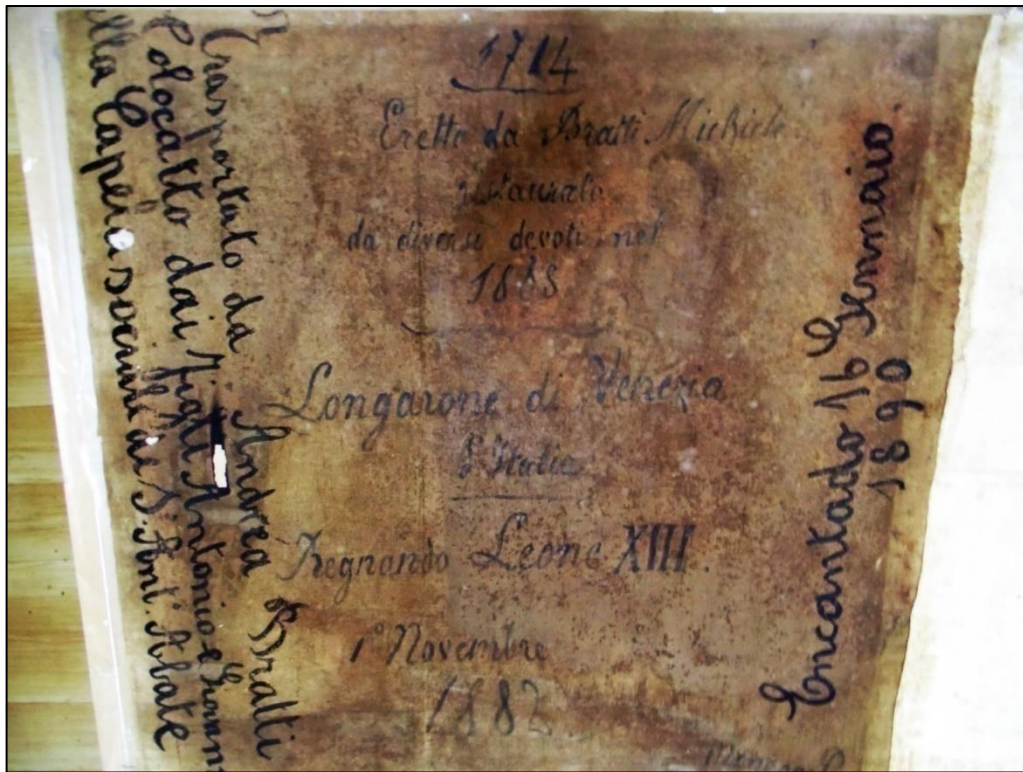 1714
Eretto da Bratti Michiele
ristaurato
da diversi devoti nel
Longarone di Venezia
d'Italia
Regnando Leone XIII.
1º Novembre
1882
Trasportato da Andrea Bratti
Colocatto dai figli Antonio e Giovanni
lla Capela sociale di S. Ant. Abate
Encantado 16 Gennaio
1890